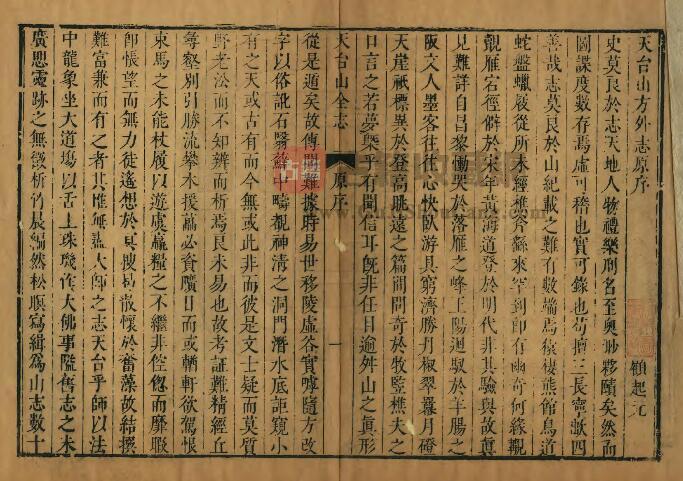 天台山方外志原序
顧起元
史莫良於志天地人物禮樂刑名至奧眇夥賾矣然而
圖諜度數存焉虛可稽也實可錄也苟擅三長寧歉四
善哉志莫良於山紀載之難有數端焉猿棲熊館鳥道
蛇盤蠟屐從所未經樵斧繇來罕到即有幽奇何緣覯
覿雁宕徑僻於宋年黃海道登於明代非其驗與故眞
見難詳自昌黎慟哭於落雁之峰王陽迴馭於羊腸之
阪文人墨客往往心快臥游具窮濟勝丹椒翠巘月磴
天崖祇標異於登高眺遠之篇間問奇於牧豎樵夫之
口言之若夢與乎有聞信耳旣非任目逾舛山之眞形
天台山全志
原序
一
從是遁矣故傳聞難據時易世移陵虛谷實嘘隨方改
字以俗訛石醫
中疇覩神清之洞門潛水底詎窺小
有之天或古有而今無或此非而彼是文士疑而莫質
野老訟而不知辨而析焉良未易也故考証難精經丘
尋壑別引勝流攀木援蘿必資曠日而或輶軒欲駕恨
束馬之未能杖屨以遊虞贏糧之不繼非倥傯而靡暇
即悵望而無力徒遙想於冥搜易散懷於奮藻故結撰
難富兼而有之者其惟無盡大師之志天台乎師以法
中龍象坐大道場以舌上珠璣作大佛事隘舊志之未
廣思靈跡之無
析竹晨編然松暝寫緝爲山志數十